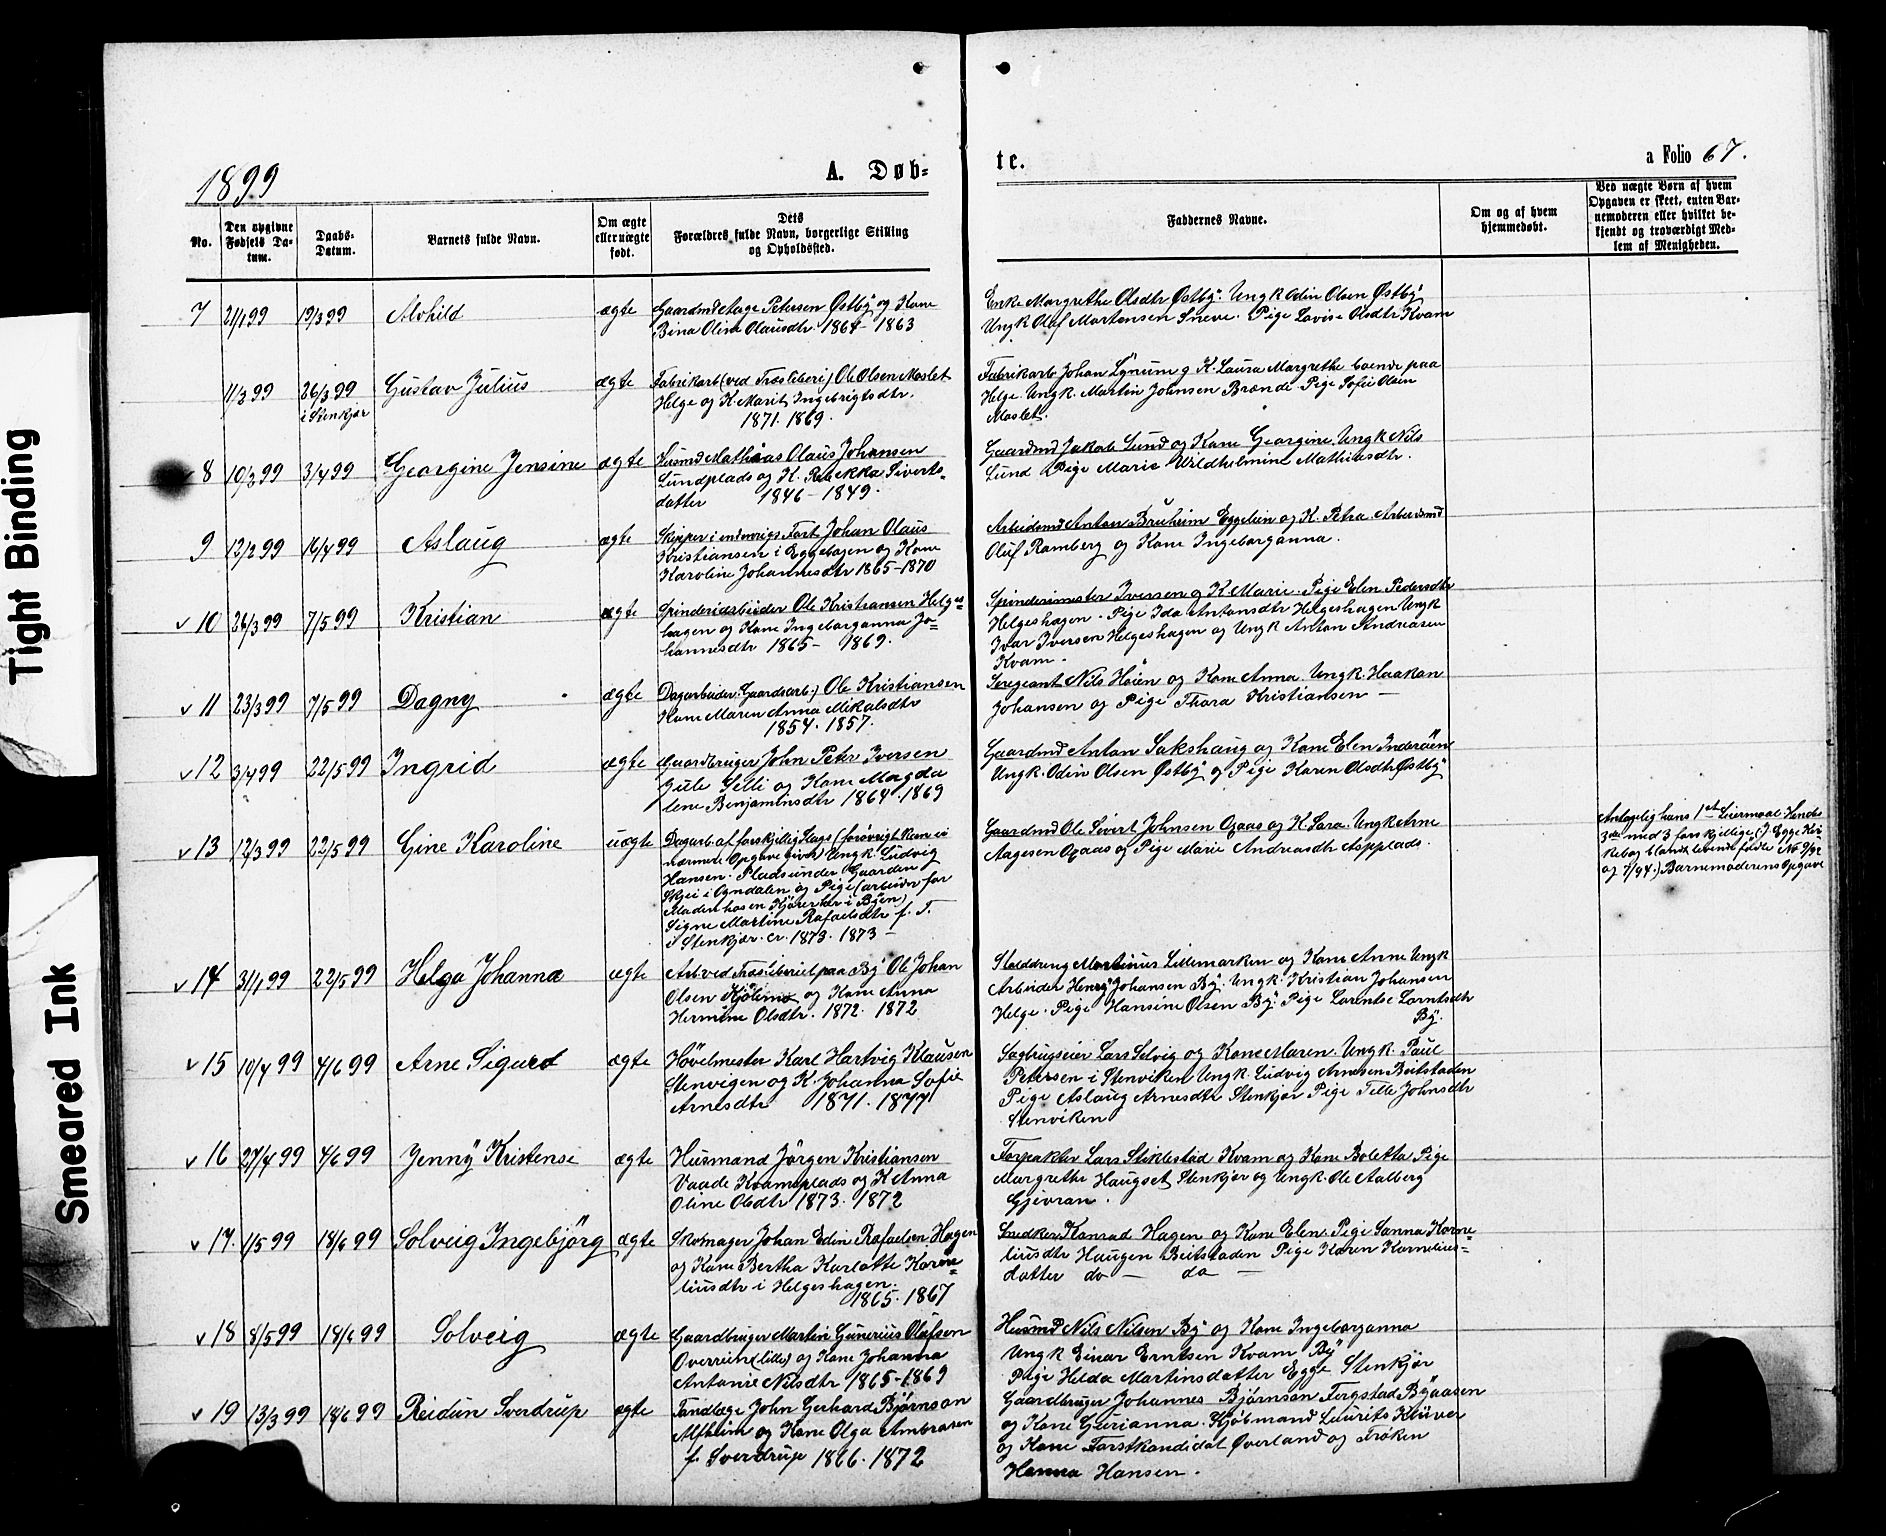 Tight Binding
Smeared Ink
1899
A. Døb-
te.
a Folio 67.
No.
Den opgivne
Fødsels Da-
tum.
Daabs-
Datum.
Barnets fulde Navn.
Om ægte
eller uægte
født.
Dets
Forældres fulde Navn, borgerlige Stilling
og Opholdssted.
Faddernes Navne.
Om og af hvem
hjemmedøbt.
Ved uægte Børn af hvem
Opgaven er skeet, enten Bar-
nemoderen eller hvilket be-
kjendt og troværdigt Med-
lem af Menigheden.
7 21/1 99 19/3 99 Alvhild ægte
Gaardmd Aage Petersen Østby og Kone
Bina Oline Olausdtr. 1864 - 1863
Enke Margrethe Olsdtr Østby. Ungk Odin Olsen Østby
Ungk Olaf Martensen Sneve. Pige Lovise Olsdtr Kvam
11/2 99 26/3 99 Gustav Julius ægte
i Stenkjær
Fabrikarb (ved Træsliberi) Ole Olsen Moslet
Helge og K. Marit Ingebrigtsdtr.
1871. 1869.
Fabrikarb Johan Lynum og K. Laura Margrethe boende paa
Helge. Ungk. Martin Johnsen Brænde. Pige Sofie Olsen
Moslet.
8 10/2 99 3/4 99 Georgine Jensine ægte
Husmd Mathias Olaus Johansen
Lundplads og K. Rebekka Siverts-
datter 1846 - 1849.
Gaardmd Jakob Lund og Kone Georgine. Ungk Nils
Lund Pige Marie Wildhelmine Mathiasdtr.
9 12/2 99 16/4 99 Aslaug ægte
Skipper i indenrigs Fart Johan Olaus
Kristiansen i Eggebogen og Kone
Karoline Johannesdtr 1865 - 1870
Arbeidsmd Anton Bruheim Eggelien og K. Petra. Arbeidsmd
Oluf Ramberg og Kone Ingeborganna.
v 10 26/3 99 7/5 99 Kristian ægte
Spinderiarbeider Ole Kristiansen Helges-
hagen og Kone Ingeborganna Jo-
hannesdtr 1865 - 1869.
Spinderimester Iversen og K. Marie. Pige Elen Pedersdtr
Helgeshagen. Pige Ida Antonsdtr Helgeshagen Ungk
Ivar Iversen Helgeshagen og Ungk Anton Andreasen
Kvam.
v 11 23/3 99 7/5 99 Dagny ægte
Dagarbeider (Gaardsarb.) Ole Kristiansen
Kone Maren Anna Mikalsdtr
1854. 1857.
Seregeant Nils Høien og Kone Anna. Ungk. Haakon
Johansen og Pige Thora Kristiansen
v 12 3/4 99 22/5 99 Ingrid ægte
Gaardbruger John Peter Iversen
Gule Selli og Kone Magda
lene Benjaminsdtr 1864. 1869
Gaardmd Anton Sakshaug og Kone Elen Inderøen
Ungk. Odin Olsen Østby og Pige Karen Olsdtr Østby
v 13 12/3 99 22/5 99 Gine Karoline uægte
Dagarb. af forskjellig Slags (forøvrigt kan ei
nærmere Opgave gives) Ungk. Ludvig
Hansen. Plads under Gaarden
Skei i Ogndalen og Pige (arbeider for
Maden hosen Kjører her i Byen)
Signe Martine Rafaelsdtr f. T.
i Stenkjær. cr. 1873. 1873 -
Gaardmd Ole Sivert Johnsen Opaas og K. Sara. Ungk Arne
Aagesen Opaas og Pige Marie Andreasdtr Aspplads.
Antagelig hans 1ste Leiermaal Hendes
3die med 3 forskjellige (J Egge Kir
kebog blandt levende fødte No 9/92
og 7/94.) Barnemoderens Opgave
v 14 31/1 99 22/5 99 Helga Johanna ægte
Arb ved Træsliberiet paa By Ole Johan
Olsen Kjølimo og Kone Anna
Hermine Olsdtr. 1872. 1872
Stalddreng Martinus Lillemarken og Kone Anne Ungk
Arbeider Henry Johansen By. Ungk. Kristian Johansen
Helge. Pige Hansine Olsen By. Pige Lorentse Lorntsdtr
By.
v 15 10/4 99 4/6 99 Arne Sigurd ægte
Høvelmester Karl Hartvig Klausen
Stenvigen og K. Johanna Sofie
Arnesdtr 1871. 1877
Sagbrugseier Lars Selvig og Kone Maren. Ungk. Paul
Petersen i Stenviken Ungk. Ludvig Arnesen Beitstaden
Pige Aslaug Arnesdtr Stenkjær Pige Telle Johnsdtr
Stenviken
v 16 27/4 99 4/6 99 Jenny Kristense ægte
Husmand Jørgen Kristiansen
Vaade Kvamsplads og K Anna
Oline Olsdtr 1873. 1872
Forpakter Lars Stiklestad Kvam og Kone Boletta Pige
Margrethe Haugset Stenkjær og Ungk. Ole Aalberg
Gjævran.
v 17. 1/5 99 18/6 99 Solveig Ingebjörg ægte
Skomager Johan Edin Rafaelsen Hagen
og Kone Bertha Karlotte Korne-
liusdtr i Helgeshagen.
1865. 1867
Snedker Konrad Hagen og Kone Elen. Pige Sanna Korne-
liusdtr Haugen Beitstaden Pige Karen Kornelius-
datter do - do -
v 18 8/5 99 18/6 99 Solveig ægte
Gaardbruger Martin Gunerius Olafsen
Overrein (lille) og Kone Johanna
Antonie Nilsdtr 1865 - 1869
Husmd Nils Nilsen By og Kone Ingeborganna
Ungk Einar Erntsen Kvam By
Pige Helda Martinsdatter Egge Stenkjær
v 19 13/3 99 18/6 99 Reidun Sverdrup ægte
Tandlæge John Gerhard Bjørnson
Alfheim og Kone Olga Ambrosen
f. Sverdrup 1866. 1872
Gaardbruger Johannes Bjørnson Fergstad Byaasen
og Kone Gurianna. Kjøbmand Laurits Klüver
og Kone Forstkandidat Øverland og Frøken
Hanna Hansen.